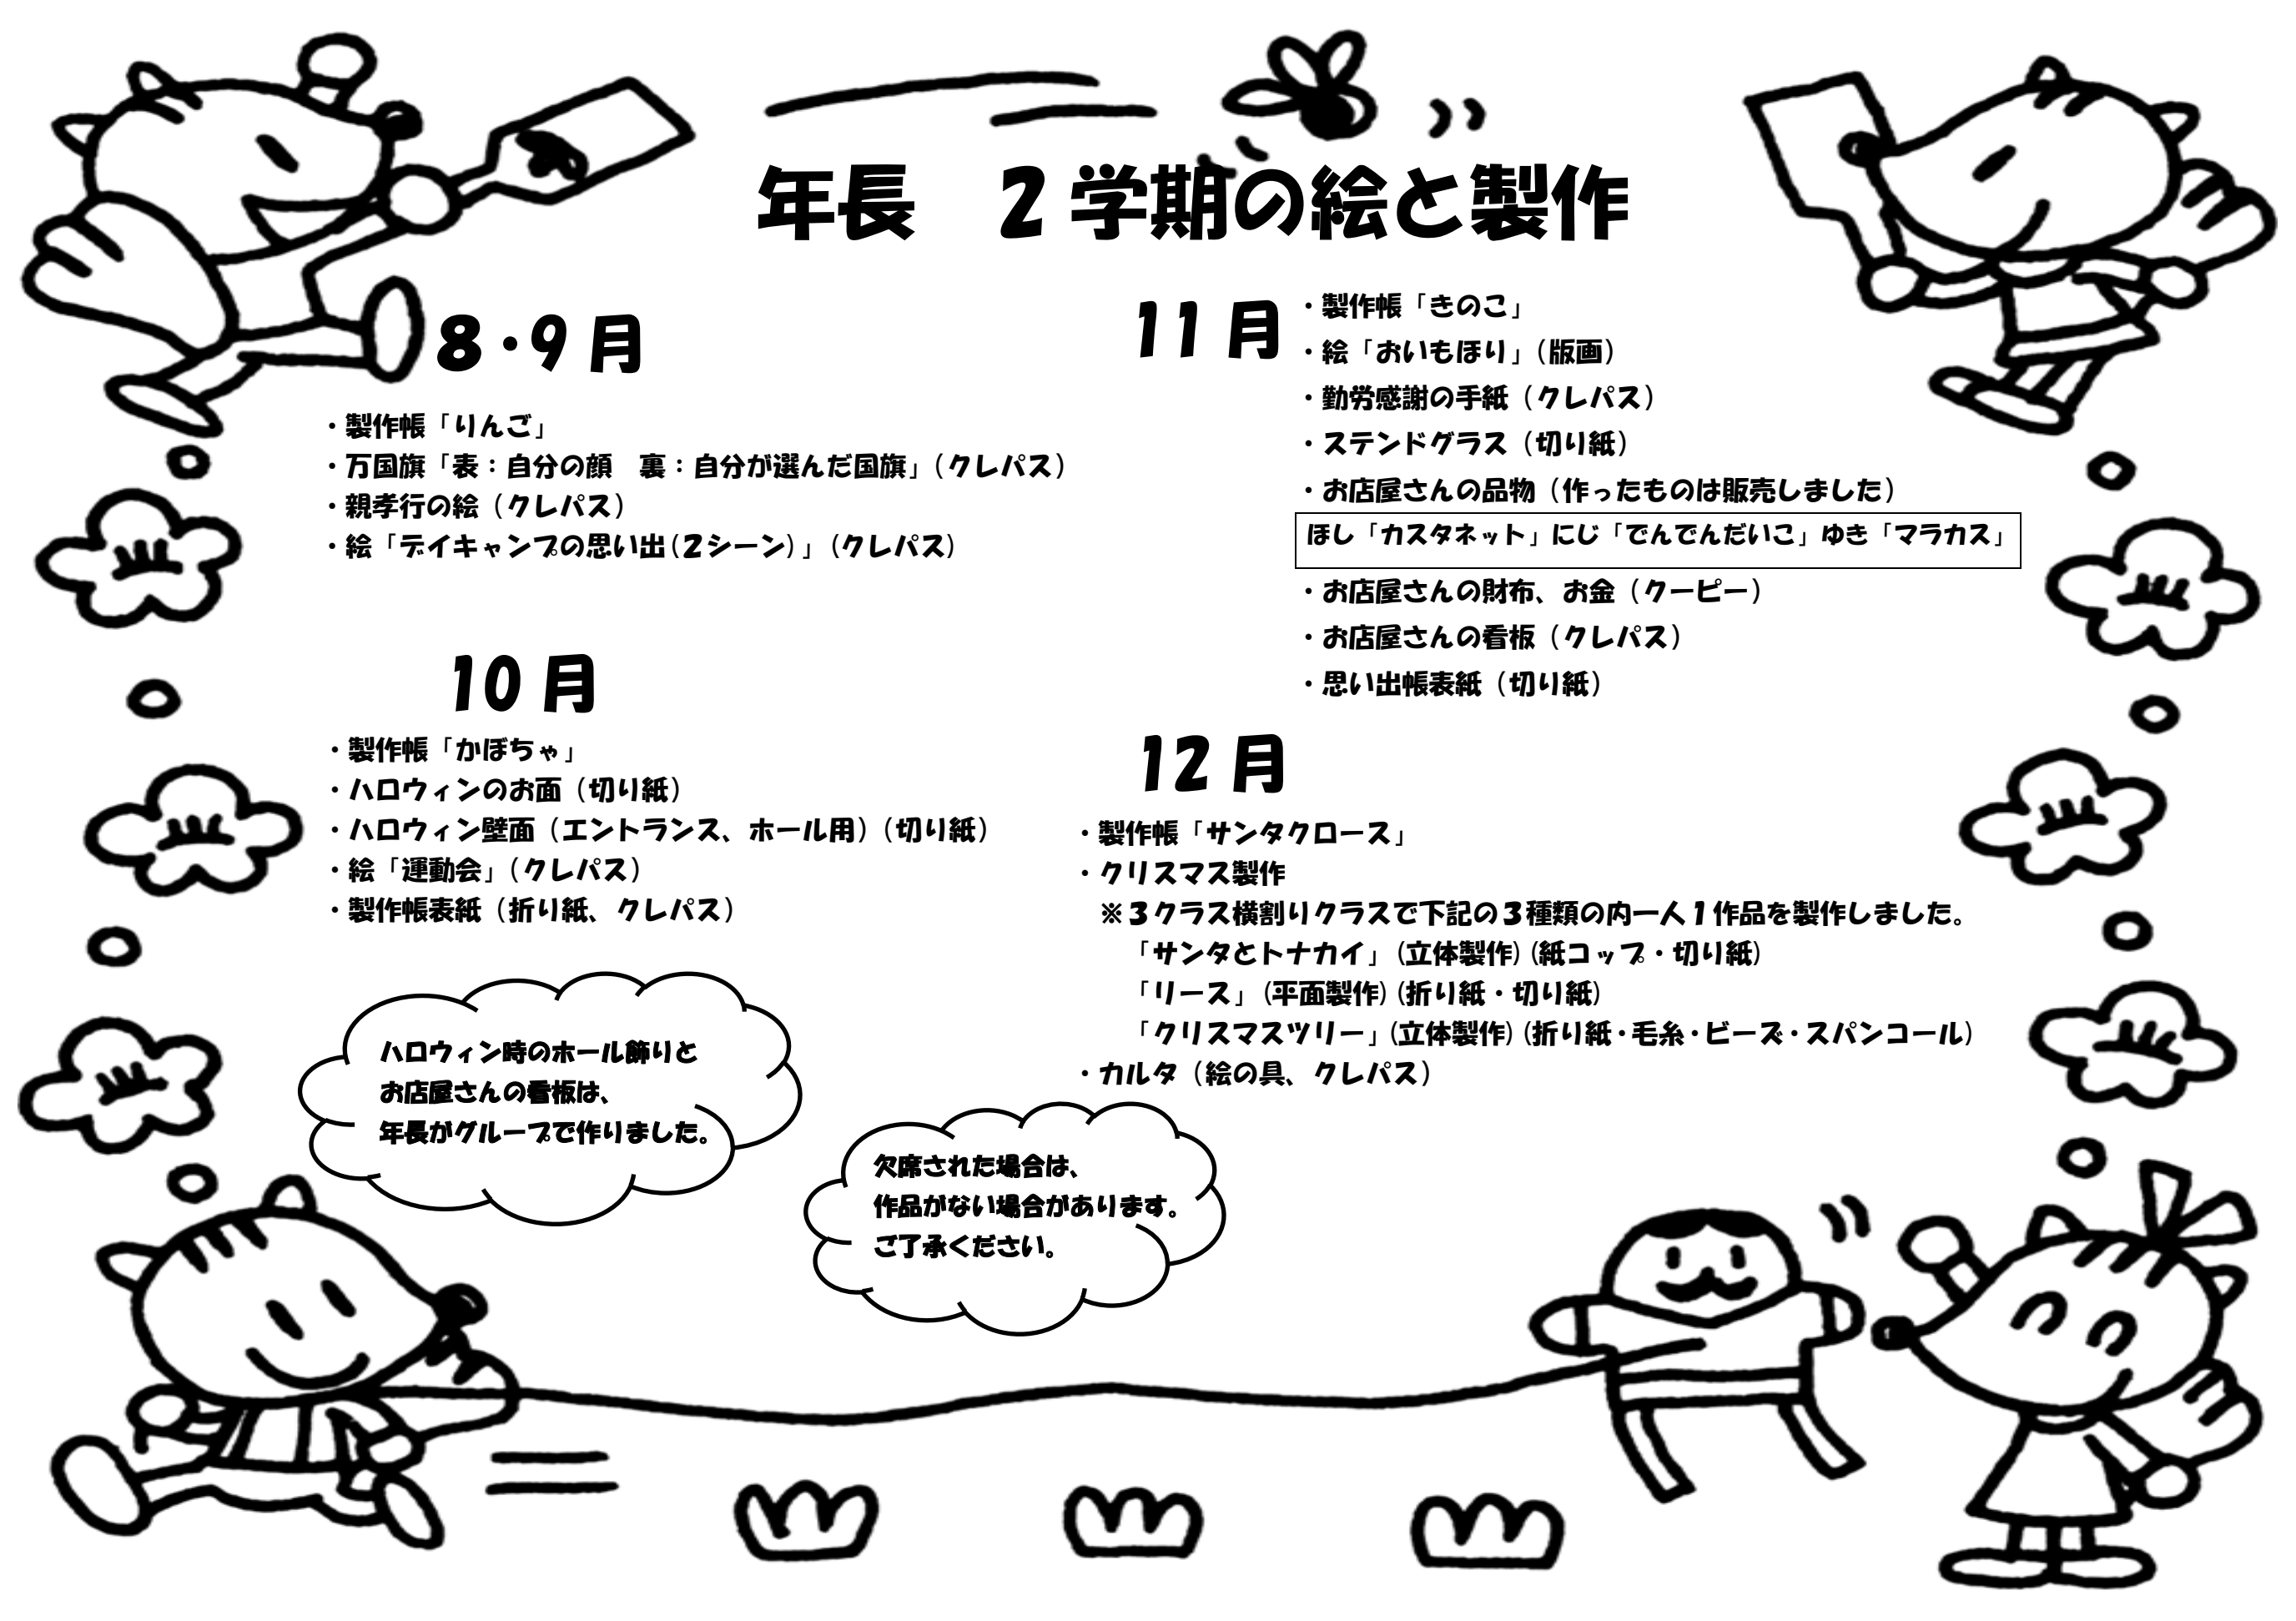 年長　2学期の絵と製作
8・9月
・製作帳「りんご」
・万国旗「表：自分の顔　裏：自分が選んだ国旗」（クレパス）
・親孝行の絵（クレパス）
・絵「デイキャンプの思い出(2シーン)」（クレパス）
10月
・製作帳「かぼちゃ」
・ハロウィンのお面（切り紙）
・ハロウィン壁面（エントランス、ホール用）（切り紙）
・絵「運動会」（クレパス）
・製作帳表紙（折り紙、クレパス）
ハロウィン時のホール飾りと
お店屋さんの看板は、
年長がグループで作りました。
11月
・製作帳「きのこ」
・絵「おいもほり」（版画）
・勤労感謝の手紙（クレパス）
・ステンドグラス（切り紙）
・お店屋さんの品物（作ったものは販売しました）
ほし「カスタネット」にじ「でんでんだいこ」ゆき「マラカス」
・お店屋さんの財布、お金（クーピー）
・お店屋さんの看板（クレパス）
・思い出帳表紙（切り紙）
12月
・製作帳「サンタクロース」
・クリスマス製作
※3クラス横割りクラスで下記の3種類の内一人1作品を製作しました。
「サンタとトナカイ」(立体製作)(紙コップ・切り紙)
「リース」(平面製作)(折り紙・切り紙)
「クリスマスツリー」(立体製作)(折り紙・毛糸・ビーズ・スパンコール)
・カルタ（絵の具、クレパス）
欠席された場合は、
作品がない場合があります。
ご了承ください。